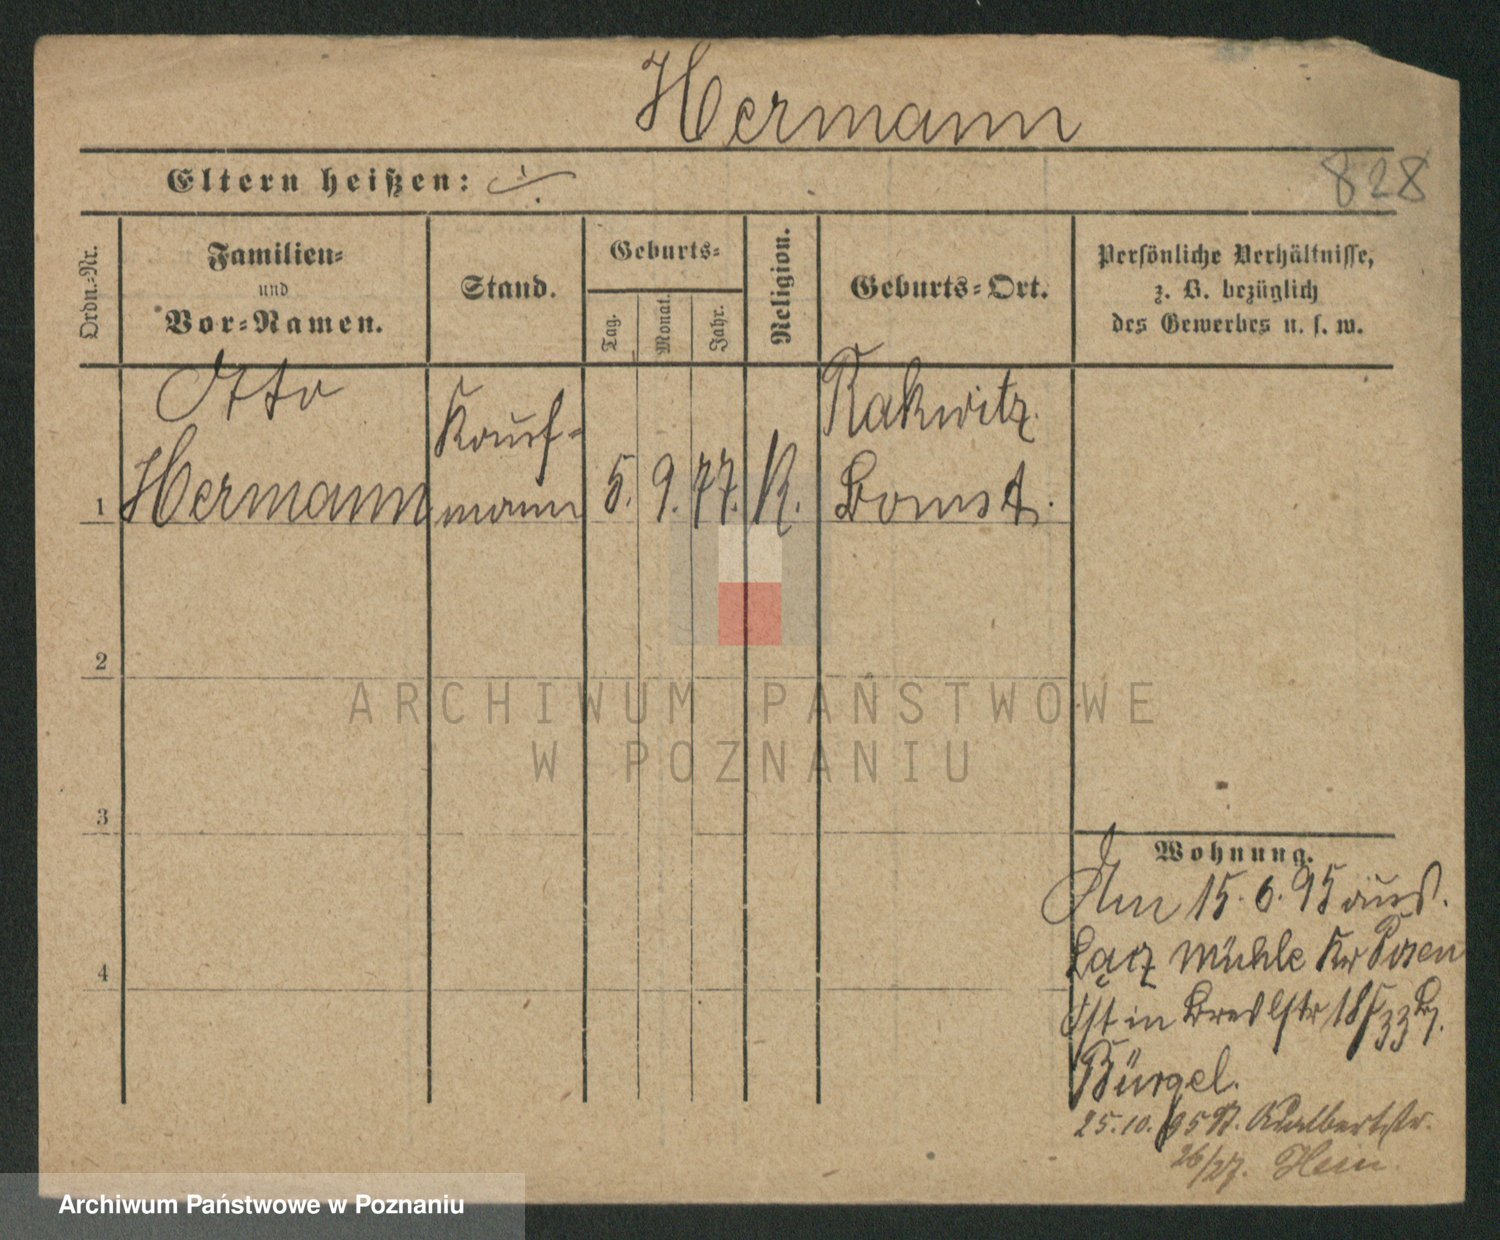 Hermann
Eltern heißen: ./.
828
Ordn.-Nr.
Familien-
und
Vor-Namen.
Stand.
Geburts-
Tag.
Monat.
Jahr.
Religion.
Geburts-Ort.
Persönliche Verhältnisse,
z. B. bezüglich
des Gewerbes u. s. w.
1
Otto
Hermann
Kauf-
mann
5. 9. 77. K.
Rakwitz
Bomst.
2
3
4
ARCHIWUM PAŃSTWOWE
W POZNANIU
Wohnung.
Am 15.6.95 aus
Mühle Kr Posen
Ist in
Bürgel.
25.10. 95 St. Adalbertstr.
26/27.
Archiwum Państwowe w Poznaniu